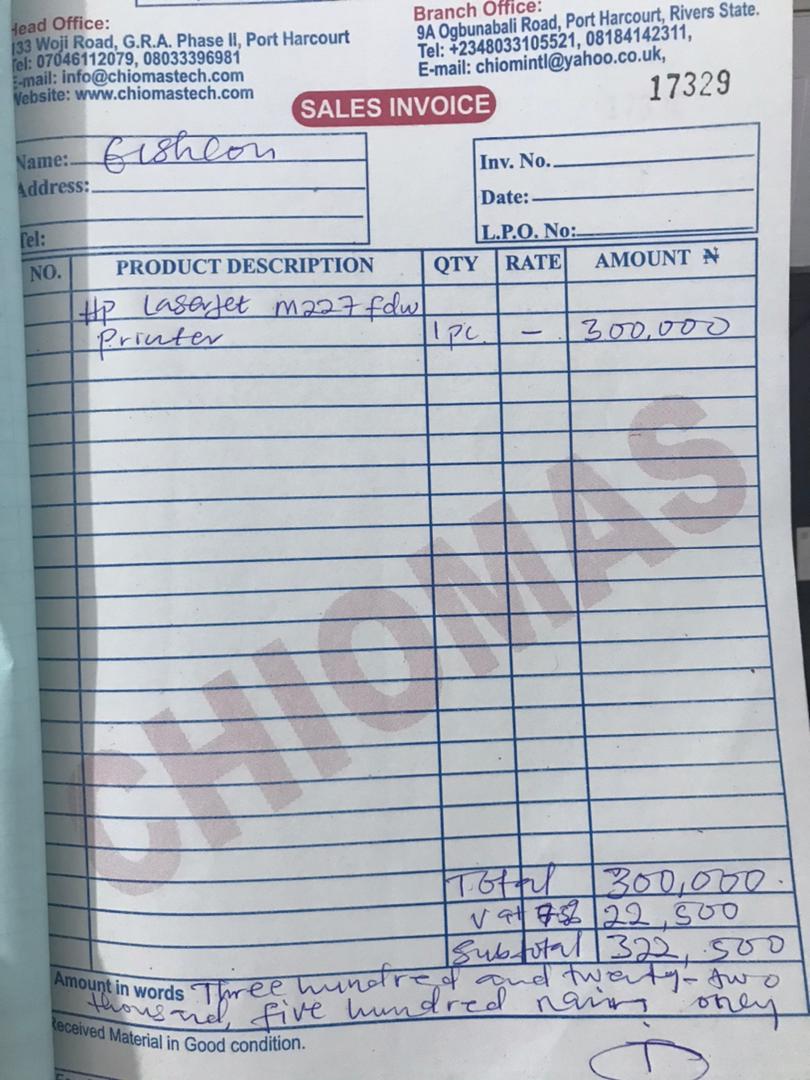 Head Office:
133 Woji Road, G.R.A. Phase II, Port Harcourt
Tel: 07046112079, 08033396981
E-mail: info@chiomastech.com
Website: www.chiomastech.com
Branch Office:
9A Ogbunabali Road, Port Harcourt, Rivers State.
Tel: +2348033105521, 08184142311,
E-mail: chiomintl@yahoo.co.uk,
17329
SALES INVOICE
Name:
Address:
Tel:
Inv. No.
Date:
L.P.O. No:
NO. PRODUCT DESCRIPTION QTY RATE AMOUNT ₦
Hp LaserJet m227fdw
Printer 1pc - 300,000
CHIOMAS
Total 300,000.
Vat 22,500
Subtotal 322,500
Amount in words Three hundred and twenty-two
thousand, five hundred naira only
Received Material in Good condition.